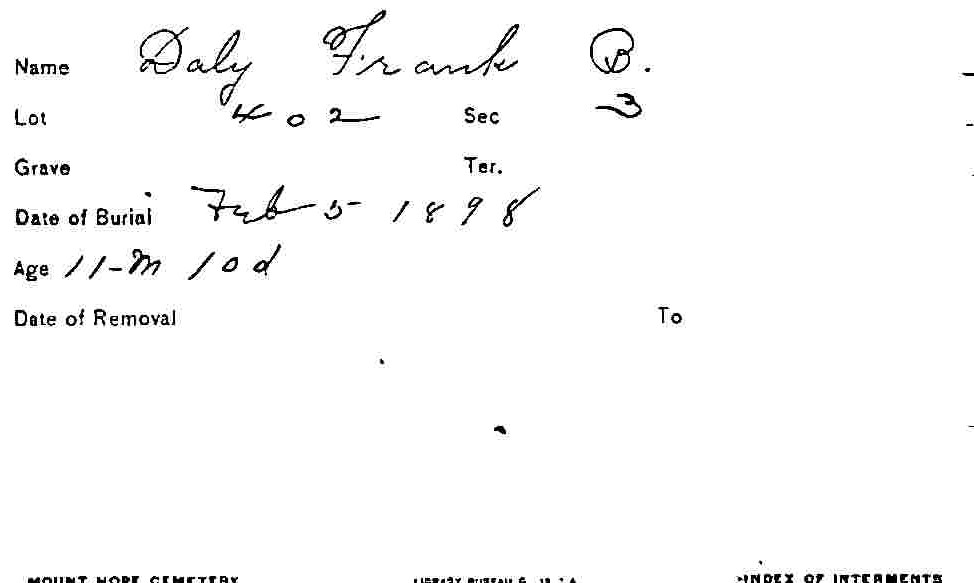 Name Daly Frank B.
Lot 402 Sec 3
Grave Ter.
Date of Burial Feb 5 1898
Age 11-m 10d
Date of Removal To
MOUNT HOPE CEMETERY LIBRARY BUREAU INDEX OF INTERMENTS